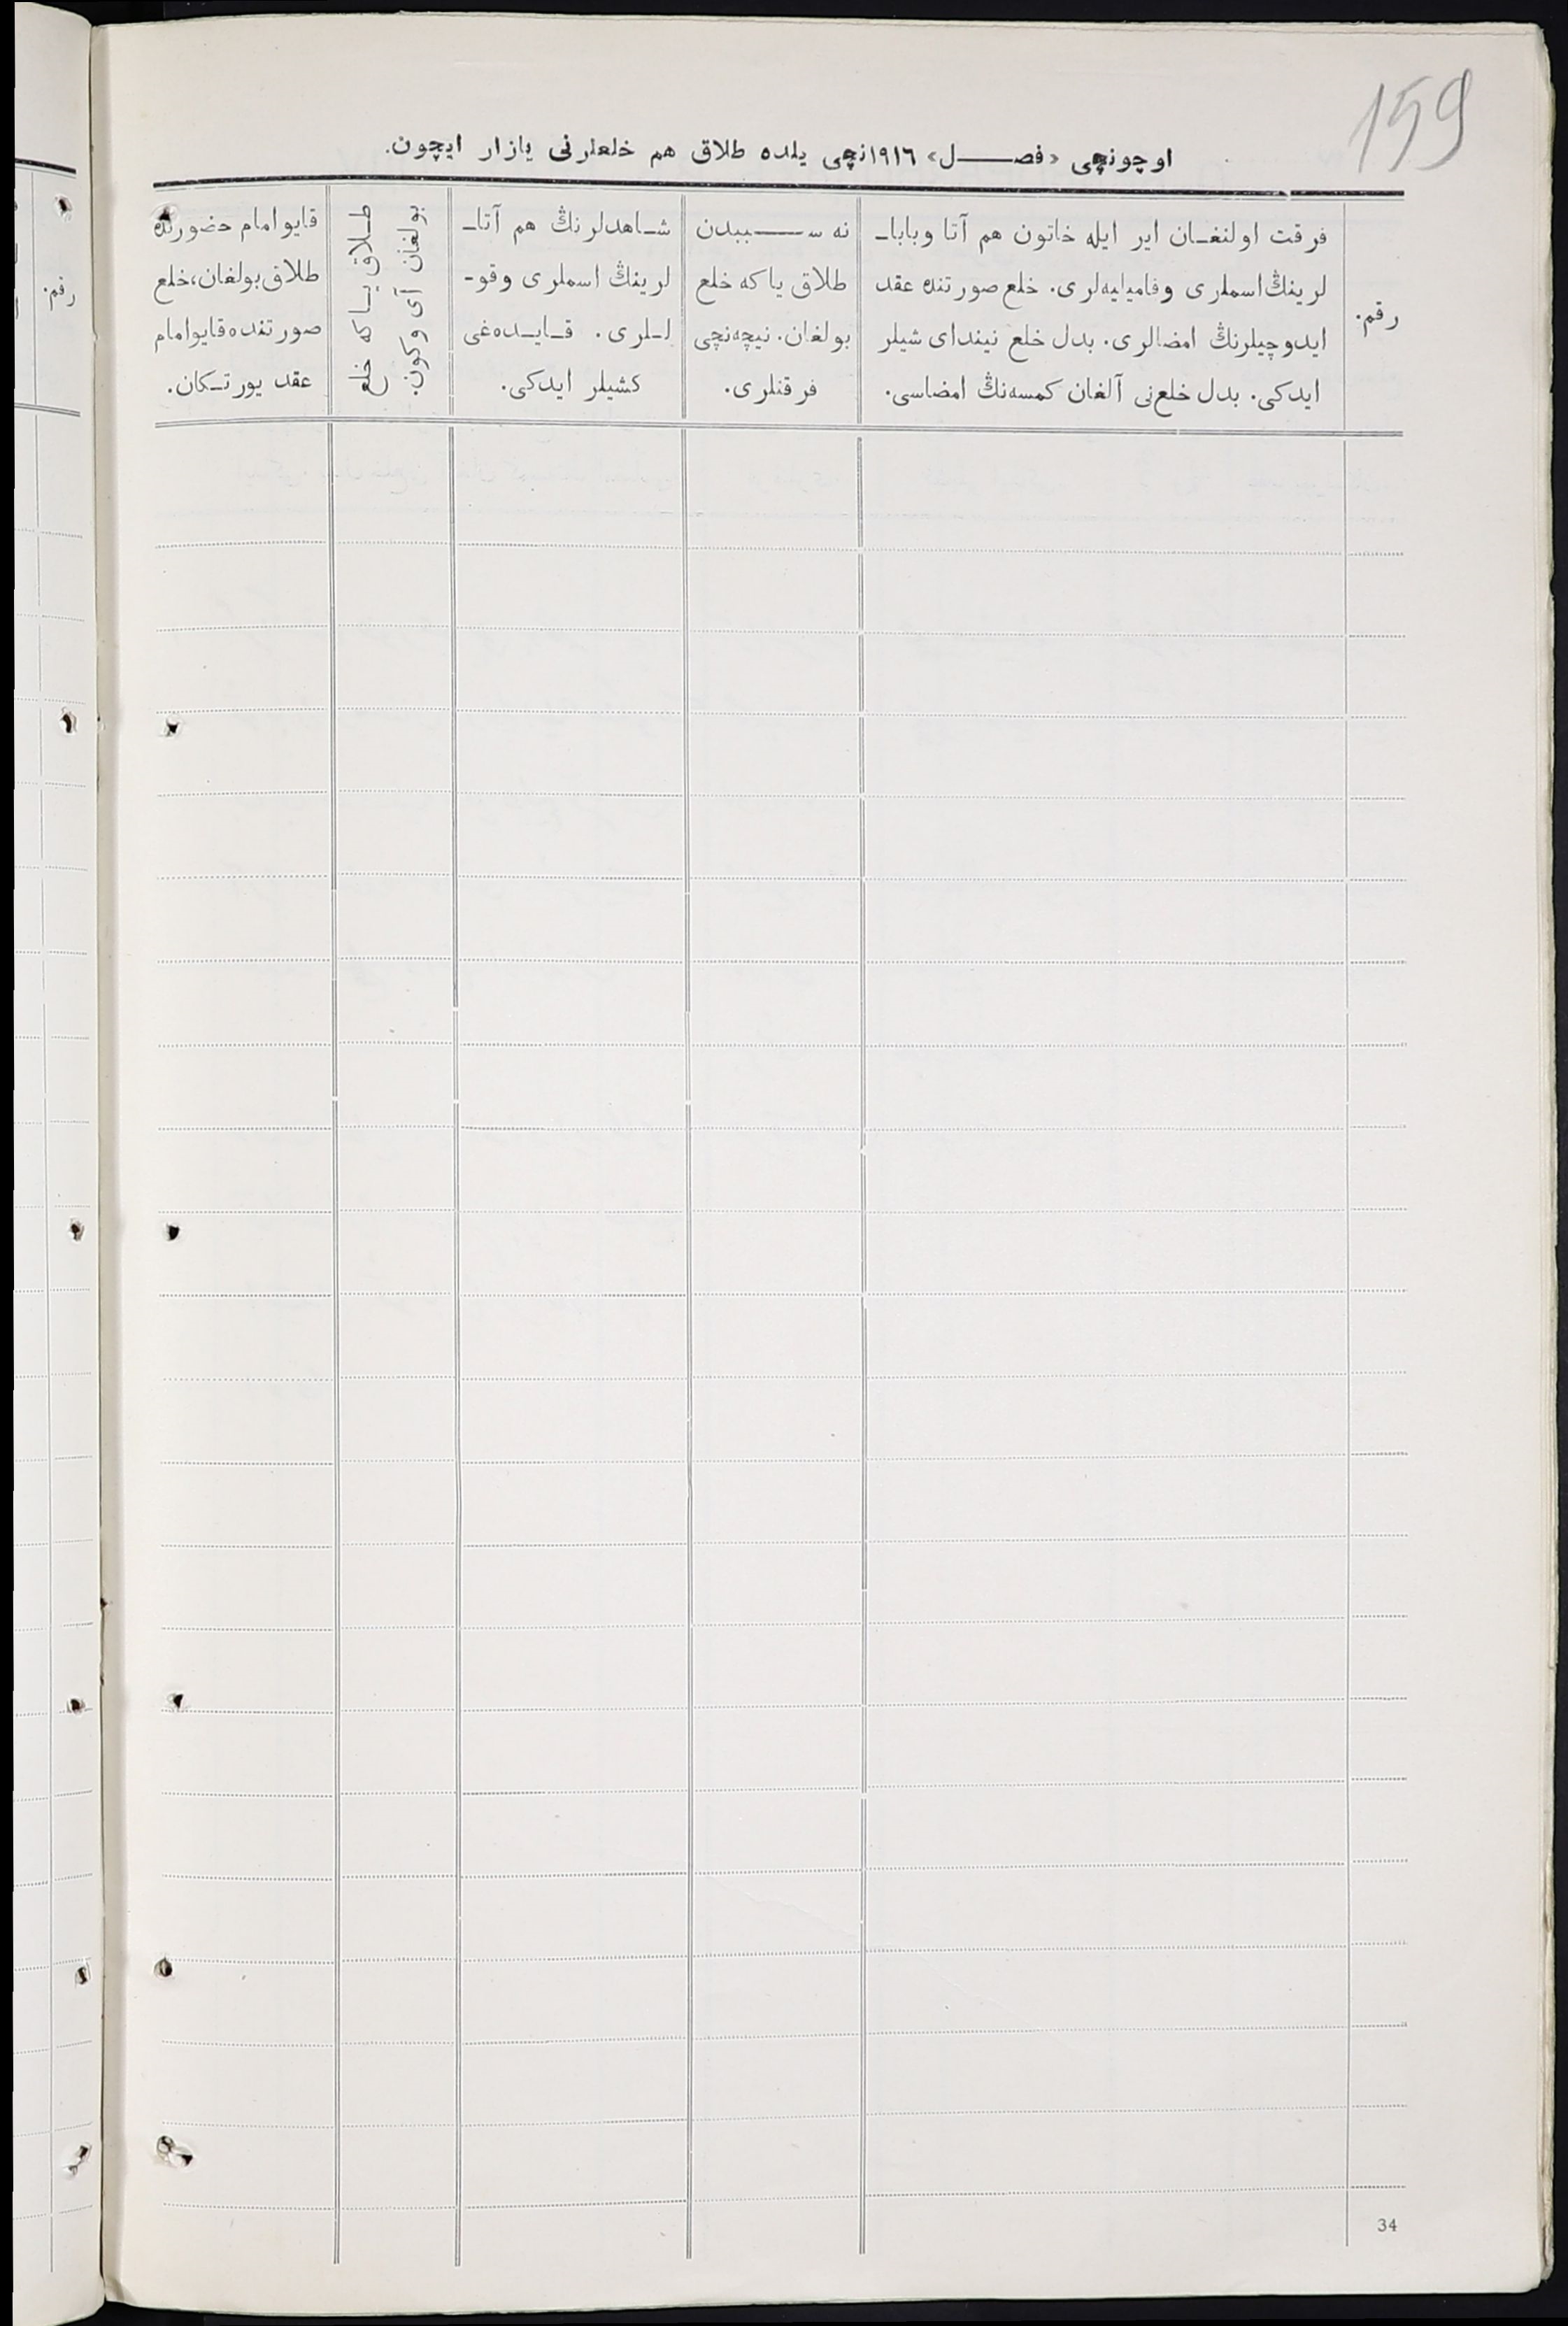 159
اوچونچی «فصــــل» ١٩١٦نچی یلده طلاق هم خلعلرنی یازار ایچون.
رقم.
فرقت اولنغـان ایر ایله خاتون هم آتا وبابا-
لرینڭ اسملری وفامیلیه‌لری. خلع صورتنده عقد
ایدوچیلرنڭ امضالری. بدل خلع نیندای شیلر
ایدکی. بدل خلع‌نی آلغان کمسه‌نڭ امضاسی.
نه ســــببدن
طلاق یا که خلع
بولغان. نیچه‌نچی
فرقتلری.
شـاهدلرنڭ هم آتا-
لرینڭ اسملری وقو-
لـلری. قـایـده‌غی
کشیلر ایدکی.
طـلاق یـا که خلع
بولغان آی وکون.
قایو امام حضورنده
طلاق بولغان، خلع
صورتنده قایو امام
عقد یورتـکان.
رقم.
34